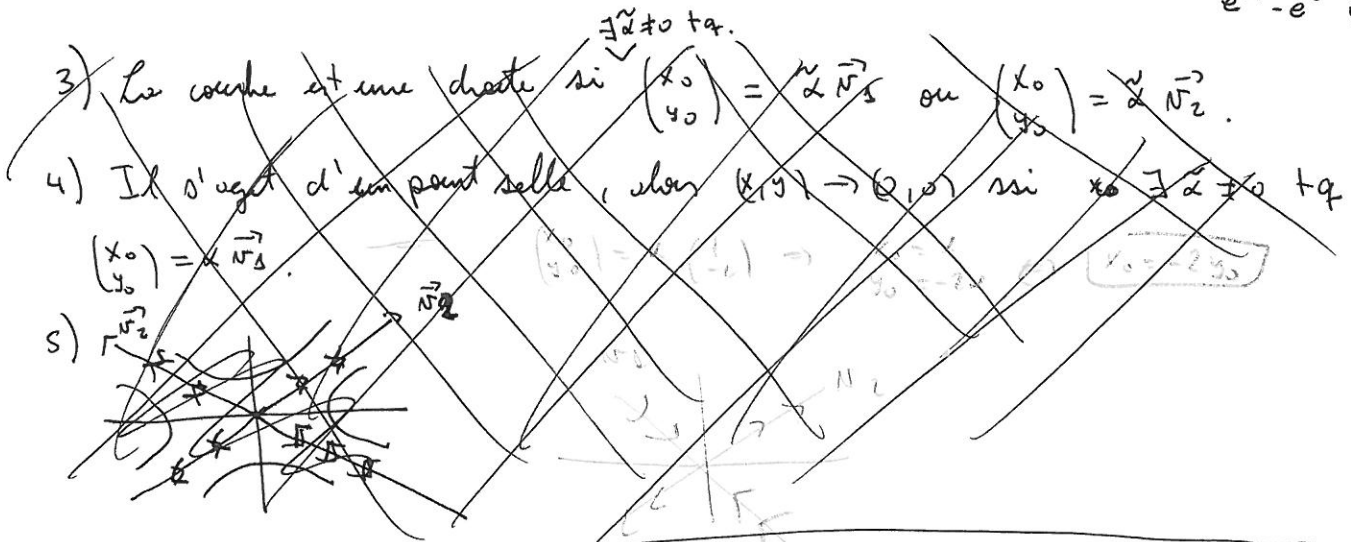 e -e
∃ α̃ ≠ 0 tq.
3) La courbe est une droite si (x₀ y₀) = α̃ v⃗₁ ou (x₀ y₀) = α̃ v⃗₂.
4) Il s'agit d'un point selle, alors (x,y) → (0,0) ssi x₀ ∃ α̃ ≠ 0 tq
(x₀ y₀) = α v⃗₁.
x₀ = -2y₀
5) v⃗₂
v⃗₂